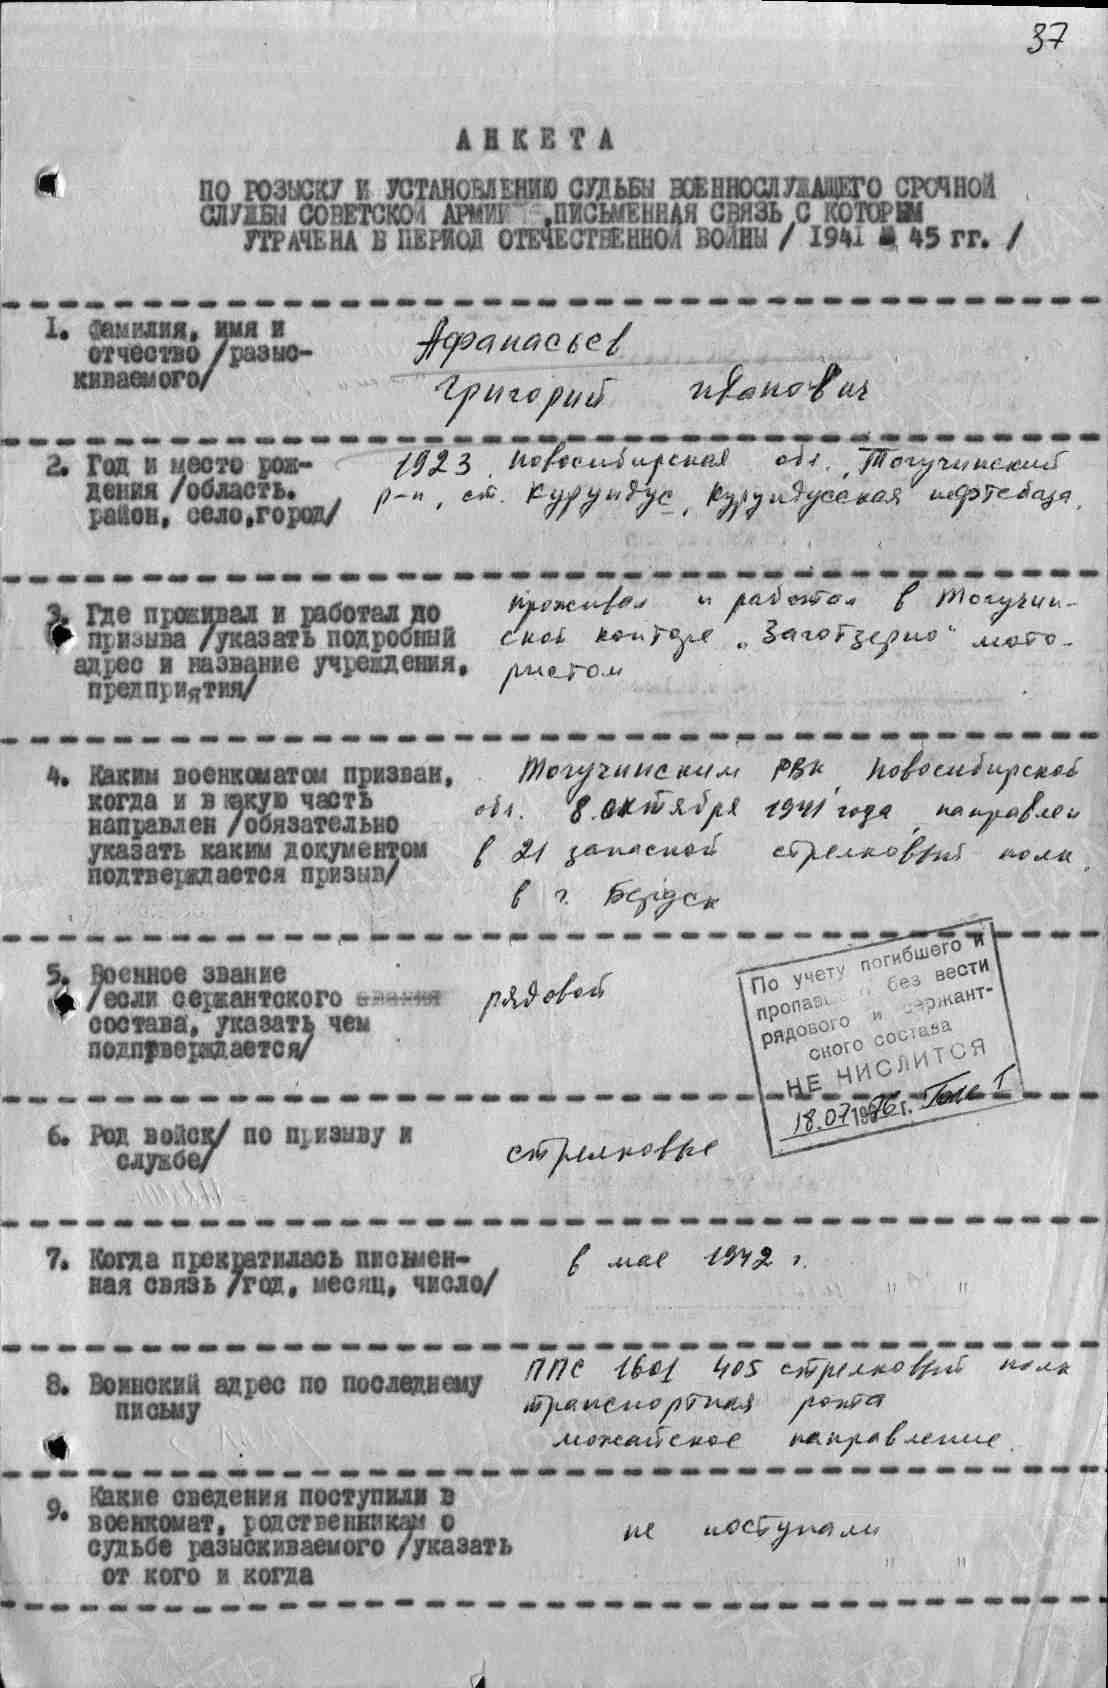 37
АНКЕТА
ПО РОЗЫСКУ И УСТАНОВЛЕНИЮ СУДЬБЫ ВОЕННОСЛУЖАЩЕГО СРОЧНОЙ
СЛУЖБЫ СОВЕТСКОЙ АРМИИ ,ПИСЬМЕННАЯ СВЯЗЬ С КОТОРЫМ
УТРАЧЕНА В ПЕРИОД ОТЕЧЕСТВЕННОЙ ВОЙНЫ / 1941 45 гг. /
1. Фамилия, имя и
отчество /разыс-
киваемого/
Афанасьев
Григорий Иванович
2. Год и место рож-
дения /область.
район, село,город/
1923 Новосибирская обл. Тогучинский
р-н, ст. Курундус, Курундусская нефтебаза.
3. Где проживал и работал до
призыва /указать подробный
адрес и название учреждения,
предприятия/
проживал и работал в Тогучин-
ской конторе „Заготзерно" мото-
ристом
4. Каким военкоматом призван,
когда и в какую часть
направлен /обязательно
указать каким документом
подтверждается призыв/
Тогучинским РВК, Новосибирской
обл. 8 октября 1941 года, направлен
в 21 запасной стрелковый полк
в г. Бердск
5. Военное звание
/если сержантского звания
состава, указать чем
подптверждается/
рядовой
По учету погибшего и
без вести
рядового и сержант-
ского состава
НЕ ЧИСЛИТСЯ
18.07.1976 г.
6. Род войск/ по призыву и
службе/
стрелковые
7. Когда прекратилась письмен-
ная связь /год, месяц, число/
в мае 1942 г.
8. Воинский адрес по последнему
письму
ППС 1601 405 стрелковый полк
транспортная рота
можайское направление.
9. Какие сведения поступили в
военкомат, родственникам о
судьбе разыскиваемого /указать
от кого и когда
не поступали